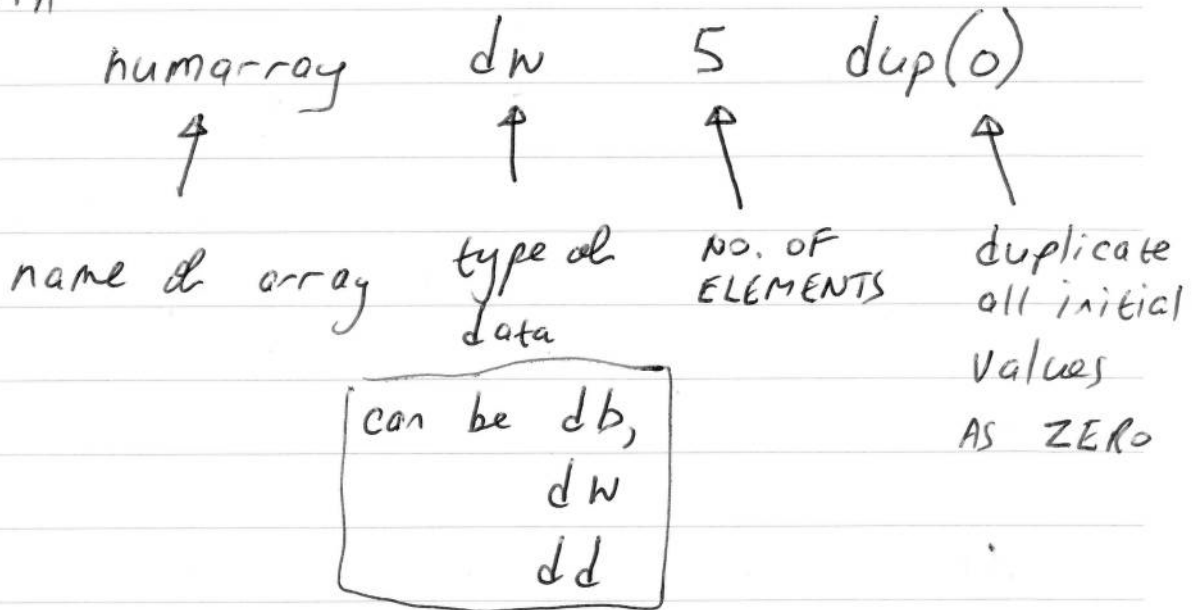 numarray dw 5 dup(0)
name of array type of data NO. OF ELEMENTS duplicate all initial values AS ZERO
can be db,
dw
dd